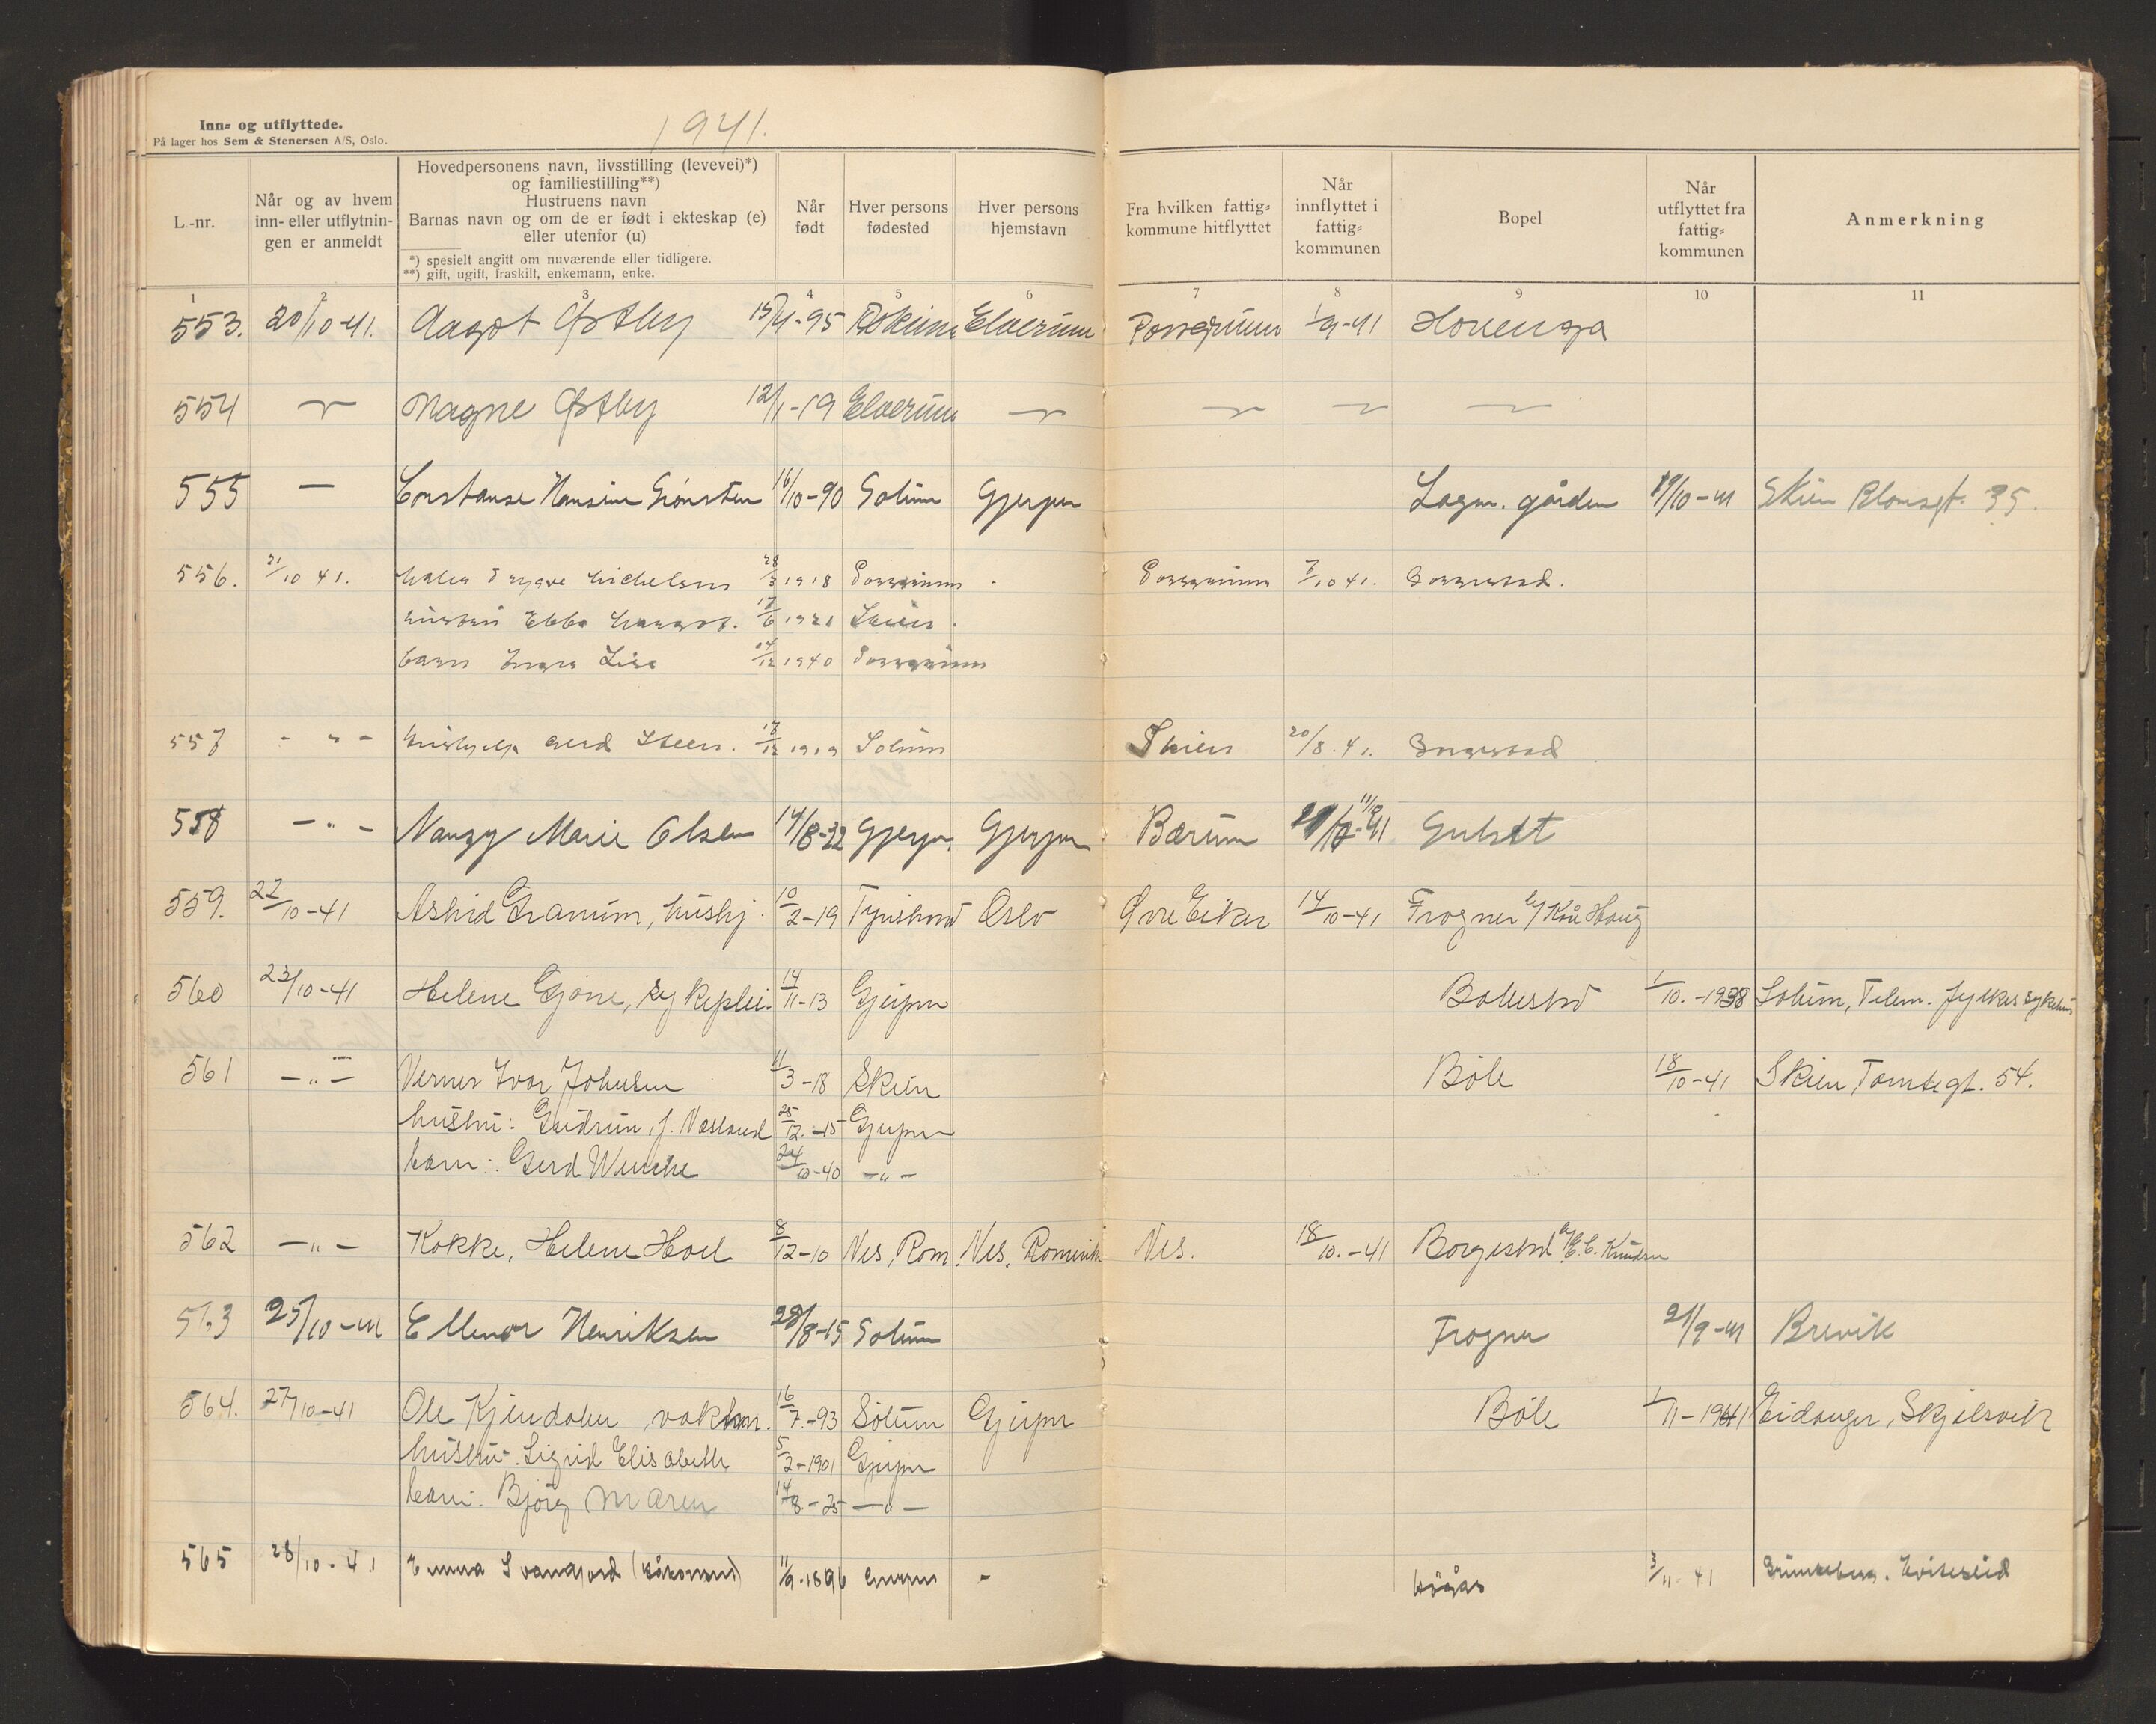 Inn- og utflyttede.
På lager hos Sem & Stenersen A/S, Oslo.
1941.
L.-nr.
Når og av hvem
inn- eller utflytnin-
gen er anmeldt
Hovedpersonens navn, livsstilling (levevei)*)
og familiestilling**)
Hustruens navn
Barnas navn og om de er født i ekteskap (e)
eller utenfor (u)
*) spesielt angitt om nuværende eller tidligere.
**) gift, ugift, fraskilt, enkemann, enke.
Når
født
Hver persons
fødested
Hver persons
hjemstavn
Fra hvilken fattig-
kommune hitflyttet
Når
innflyttet i
fattig-
kommunen
Bopel
Når
utflyttet fra
fattig-
kommunen
Anmerkning
1 2 3 4 5 6 7 8 9 10 11
553. 20/10-41. Aagot Østby 15/4-95 Elverum Porsgrunn 1/9-41 Hovenga
554 — Magne Østby 12/1-19 Elverum — — — —
555 — Constanse Hansine Grønsten 16/10-90 Solum Gjerpen Lagm. gården 19/10-41 Skien 35.
556. 21/10 41. Trygve Michelsen 28/3 1918 Porsgrunn Porsgrunn 7/10 41. Borgestad.
hustru Ebba 17/6 1921 Skien
barn Lise 1940 Porsgrunn
557 - " - hushjelp Gerd Steen. 17/12 1919 Solum Skien 20/8. 41. Borgestad
558 - " - Nanzy Marie Olsen 14/8-32 Gjerpen Gjerpen Bærum 11/10 41 Gulset
559. 22/10-41 Astrid Granum, hushj. 10/2-19 Oslo Øvre Eiker 14/10-41 Frogner b/ Kåre Haug
560 23/10-41 Helene Gjone, sykeplei. 14/11-13 Gjerpen Bollestad 1/10.-1938 Solum, Telem. fylkes sykehus
561 - " - Verner Ivar Johnsen 11/3-18 Skien Bøle 18/10-41 Skien, Tomtegt. 54.
hustru: Gudrun, f. Næsland 25/12.-15 Gjerpen
barn: Gerd Wenche 24/10-40 - " -
562 - " - Kokke, Helene Hoel 8/12-10 Nes, Rom. Nes, Romerike Nes. 18/10.-41 Borgestad b/ E.C. Knudsen
563 25/10-41 Ellenor Henriksen 28/8-15 Solum Frogner 21/9-41 Brevik
564. 27/10-41 Ole Kjendalen, vaktm. 16/7.-93 Solum Gjerpen Bøle 1/11-1941 Eidanger, Skjelsvik
hustru: Sigrid Elisabeth 5/2-1901 Gjerpen
barn: Bjørg Maren 14/8.-25 - " -
565 28/10-41 Emma 11/9-1896 Gjerpen - 3/11-41 Kviteseid